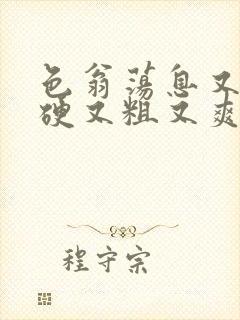 色翁荡息又
硬又粗又爽
程守宗